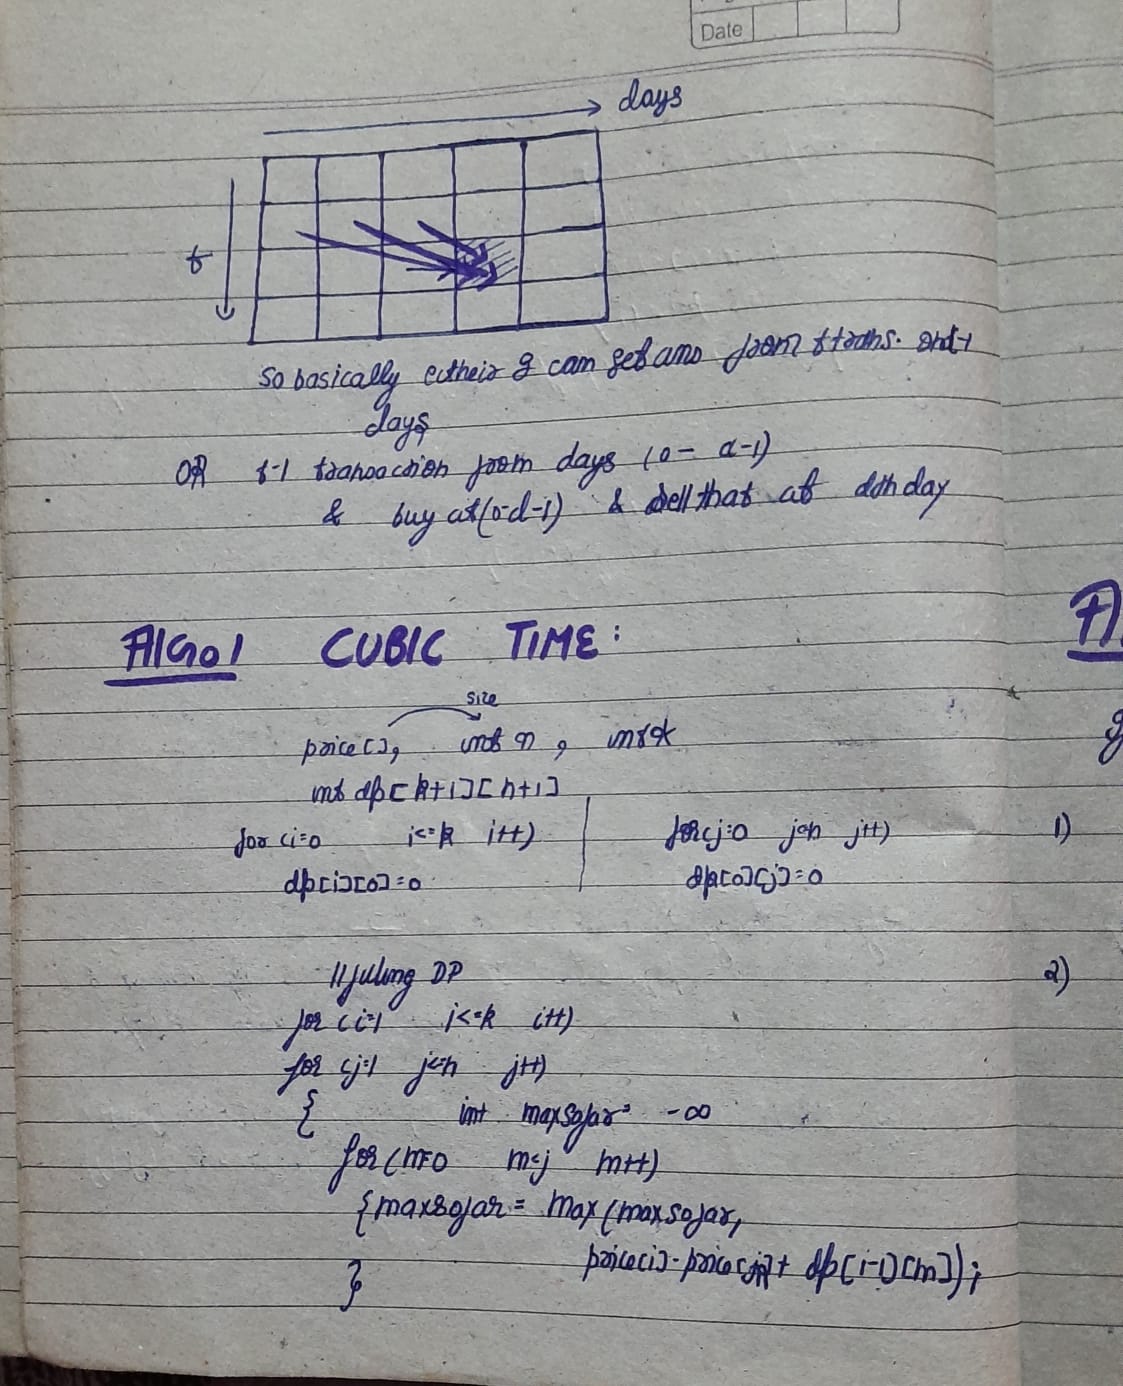 Date
days
t
So basically either I can get ans from t trans. and d-1
days
OR t-1 transaction from days (0 - d-1)
& buy at (0-d-1) & sell that at dth day
AlGo1 CUBIC TIME:
size
price[], int n, int k
int dp[k+1][n+1]
for (i=0 i<=k i++) for(j=0 j<=n j++)
dp[i][0]=0 dp[0][j]=0
1)
// filling DP
2)
for (i=1 i<=k i++)
for (j=1 j<=n j++)
{ int maxsofar= -∞
for (m=0 m<j m++)
{maxsofar= max(maxsofar,
price[i]- price[] + dp[i-1][m]);
}